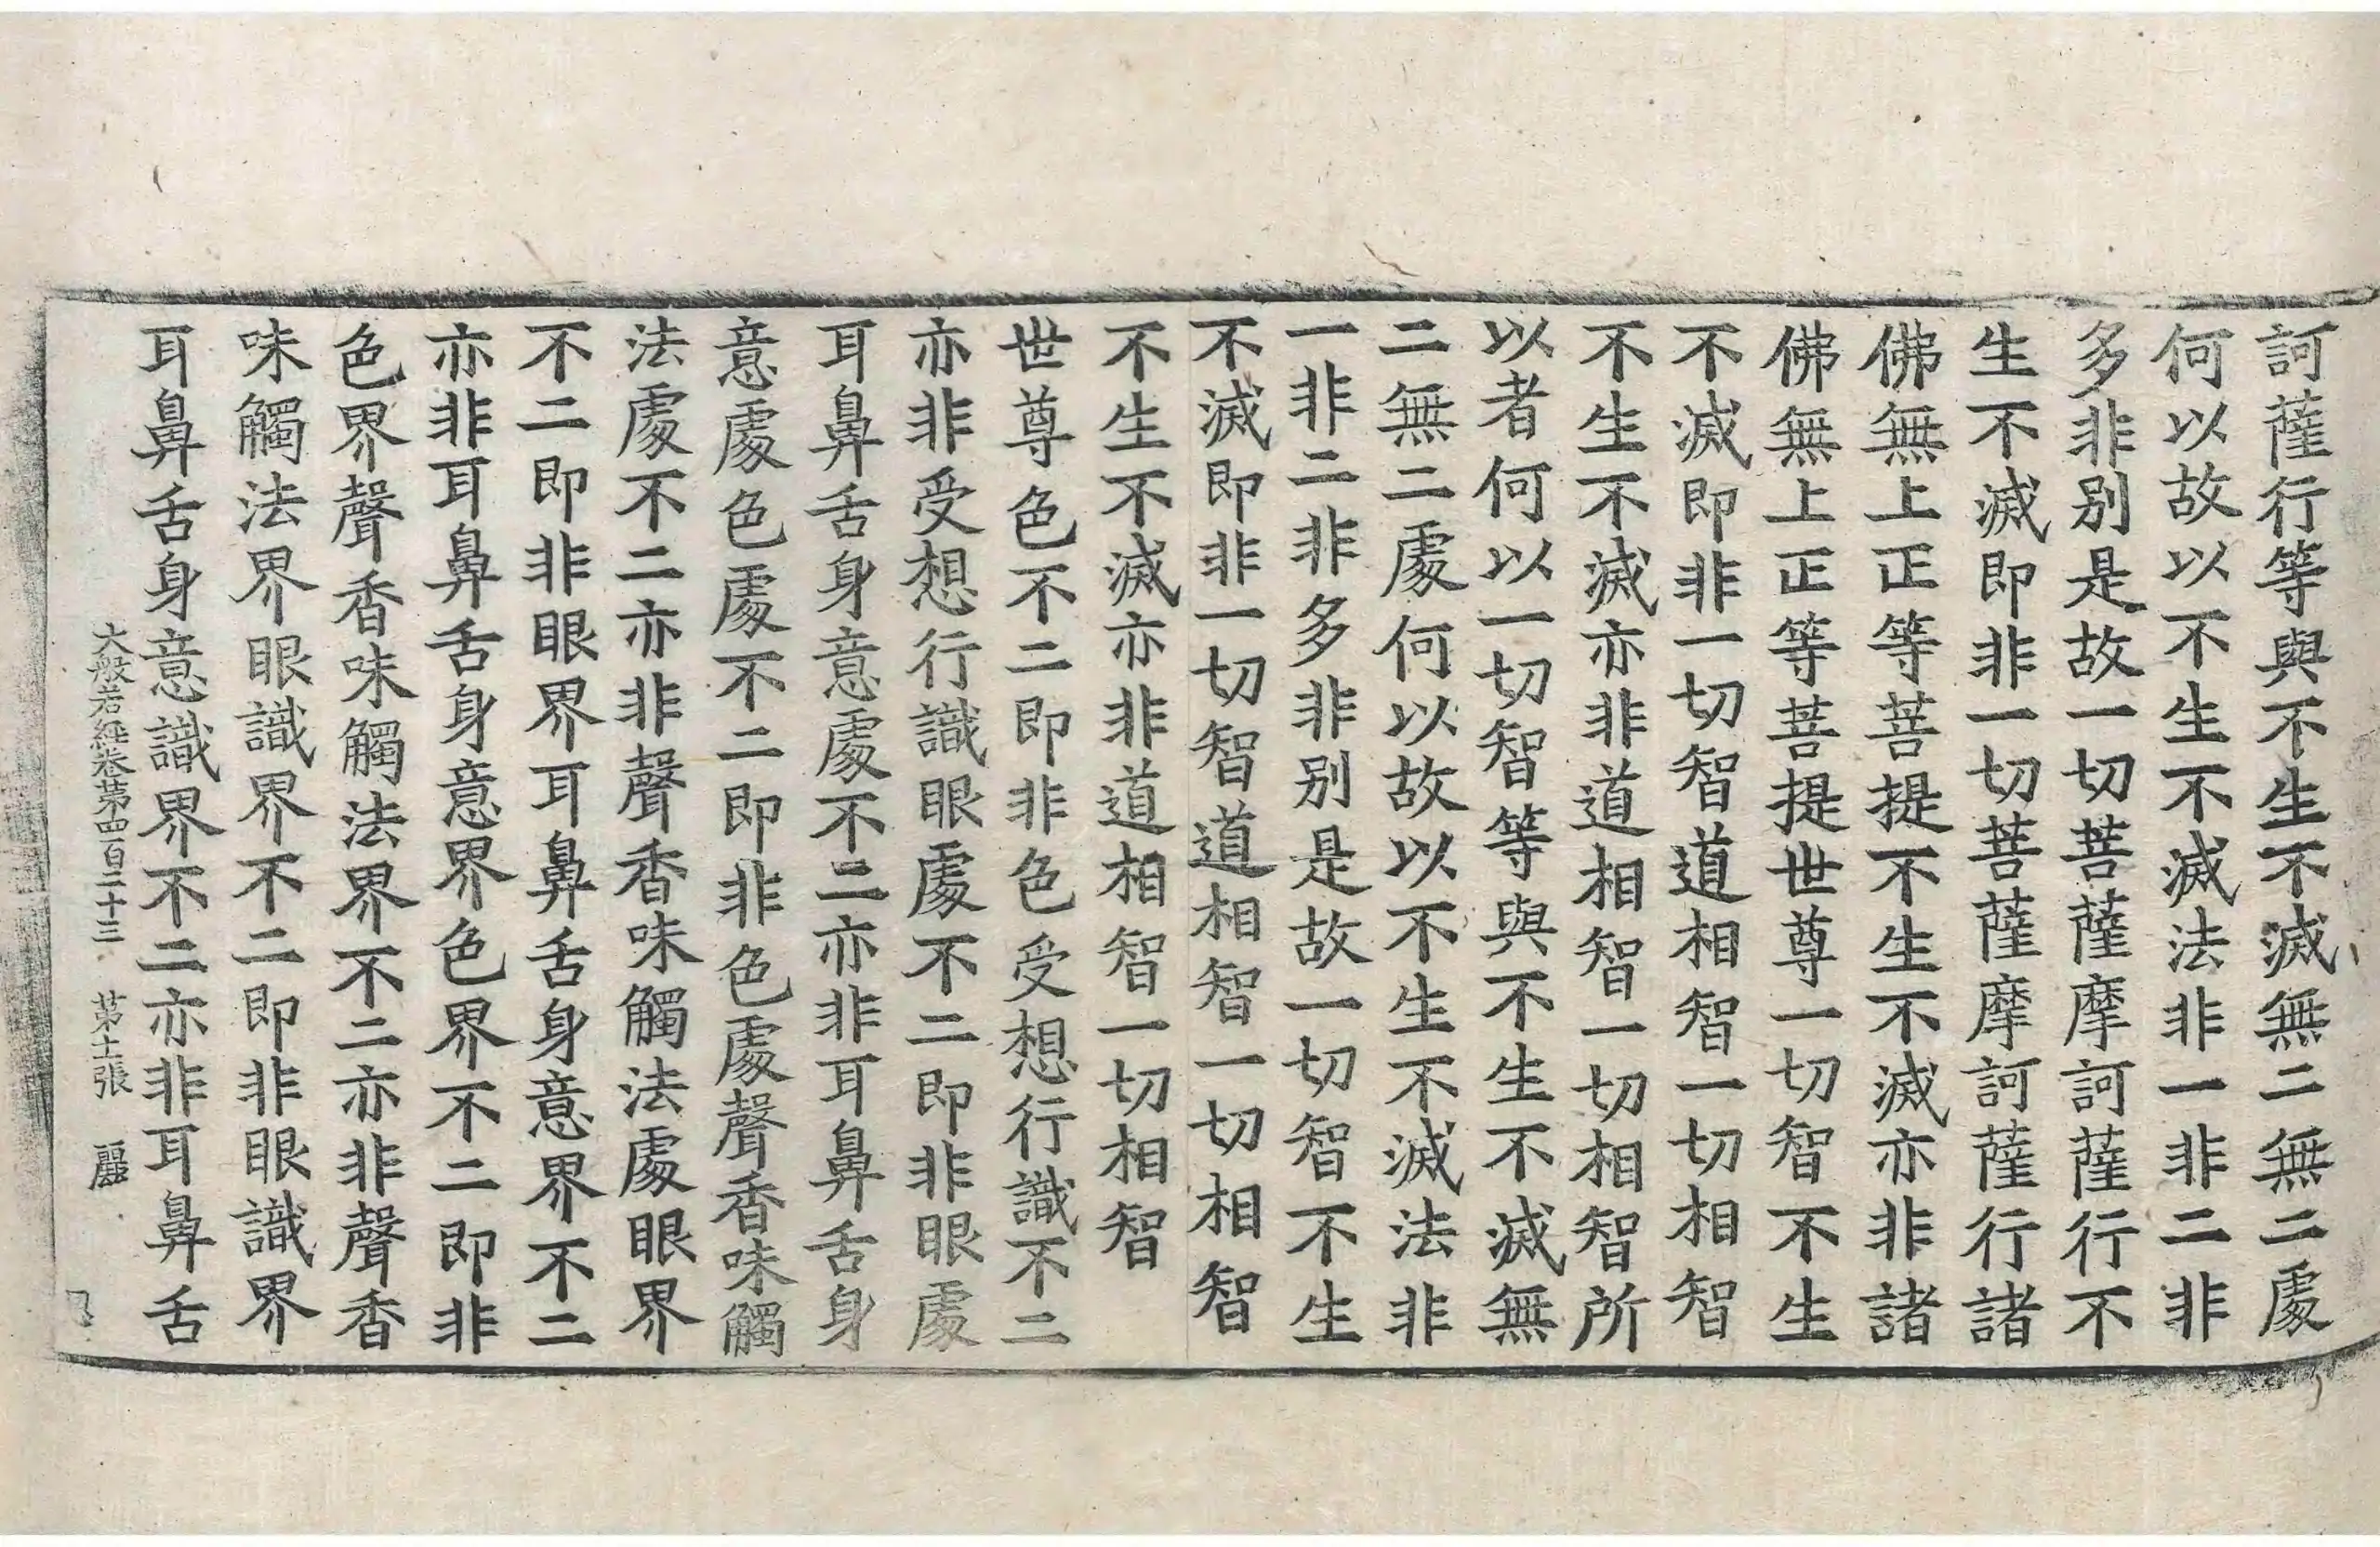 訶薩行等與不生不滅無二無二處
何以故以不生不滅法非一非二非
多非别是故一切菩薩摩訶薩行不
生不滅即非一切菩薩摩訶薩行諸
佛無上正等菩提不生不滅亦非諸
佛無上正等菩提世尊一切智不生
不滅即非一切智道相智一切相智
不生不滅亦非道相智一切相智所
以者何以一切智等與不生不滅無
二無二處何以故以不生不滅法非
一非二非多非别是故一切智不生
不滅即非一切智道相智一切相智
不生不滅亦非道相智一切相智
世尊色不二即非色受想行識不二
亦非受想行識眼處不二即非眼處
耳鼻舌身意處不二亦非耳鼻舌身
意處色處不二即非色處聲香味觸
法處不二亦非聲香味觸法處眼界
不二即非眼界耳鼻舌身意界不二
亦非耳鼻舌身意界色界不二即非
色界聲香味觸法界不二亦非聲香
味觸法界眼識界不二即非眼識界
耳鼻舌身意識界不二亦非耳鼻舌
大般若經卷第四百二十三 第十二張 麗